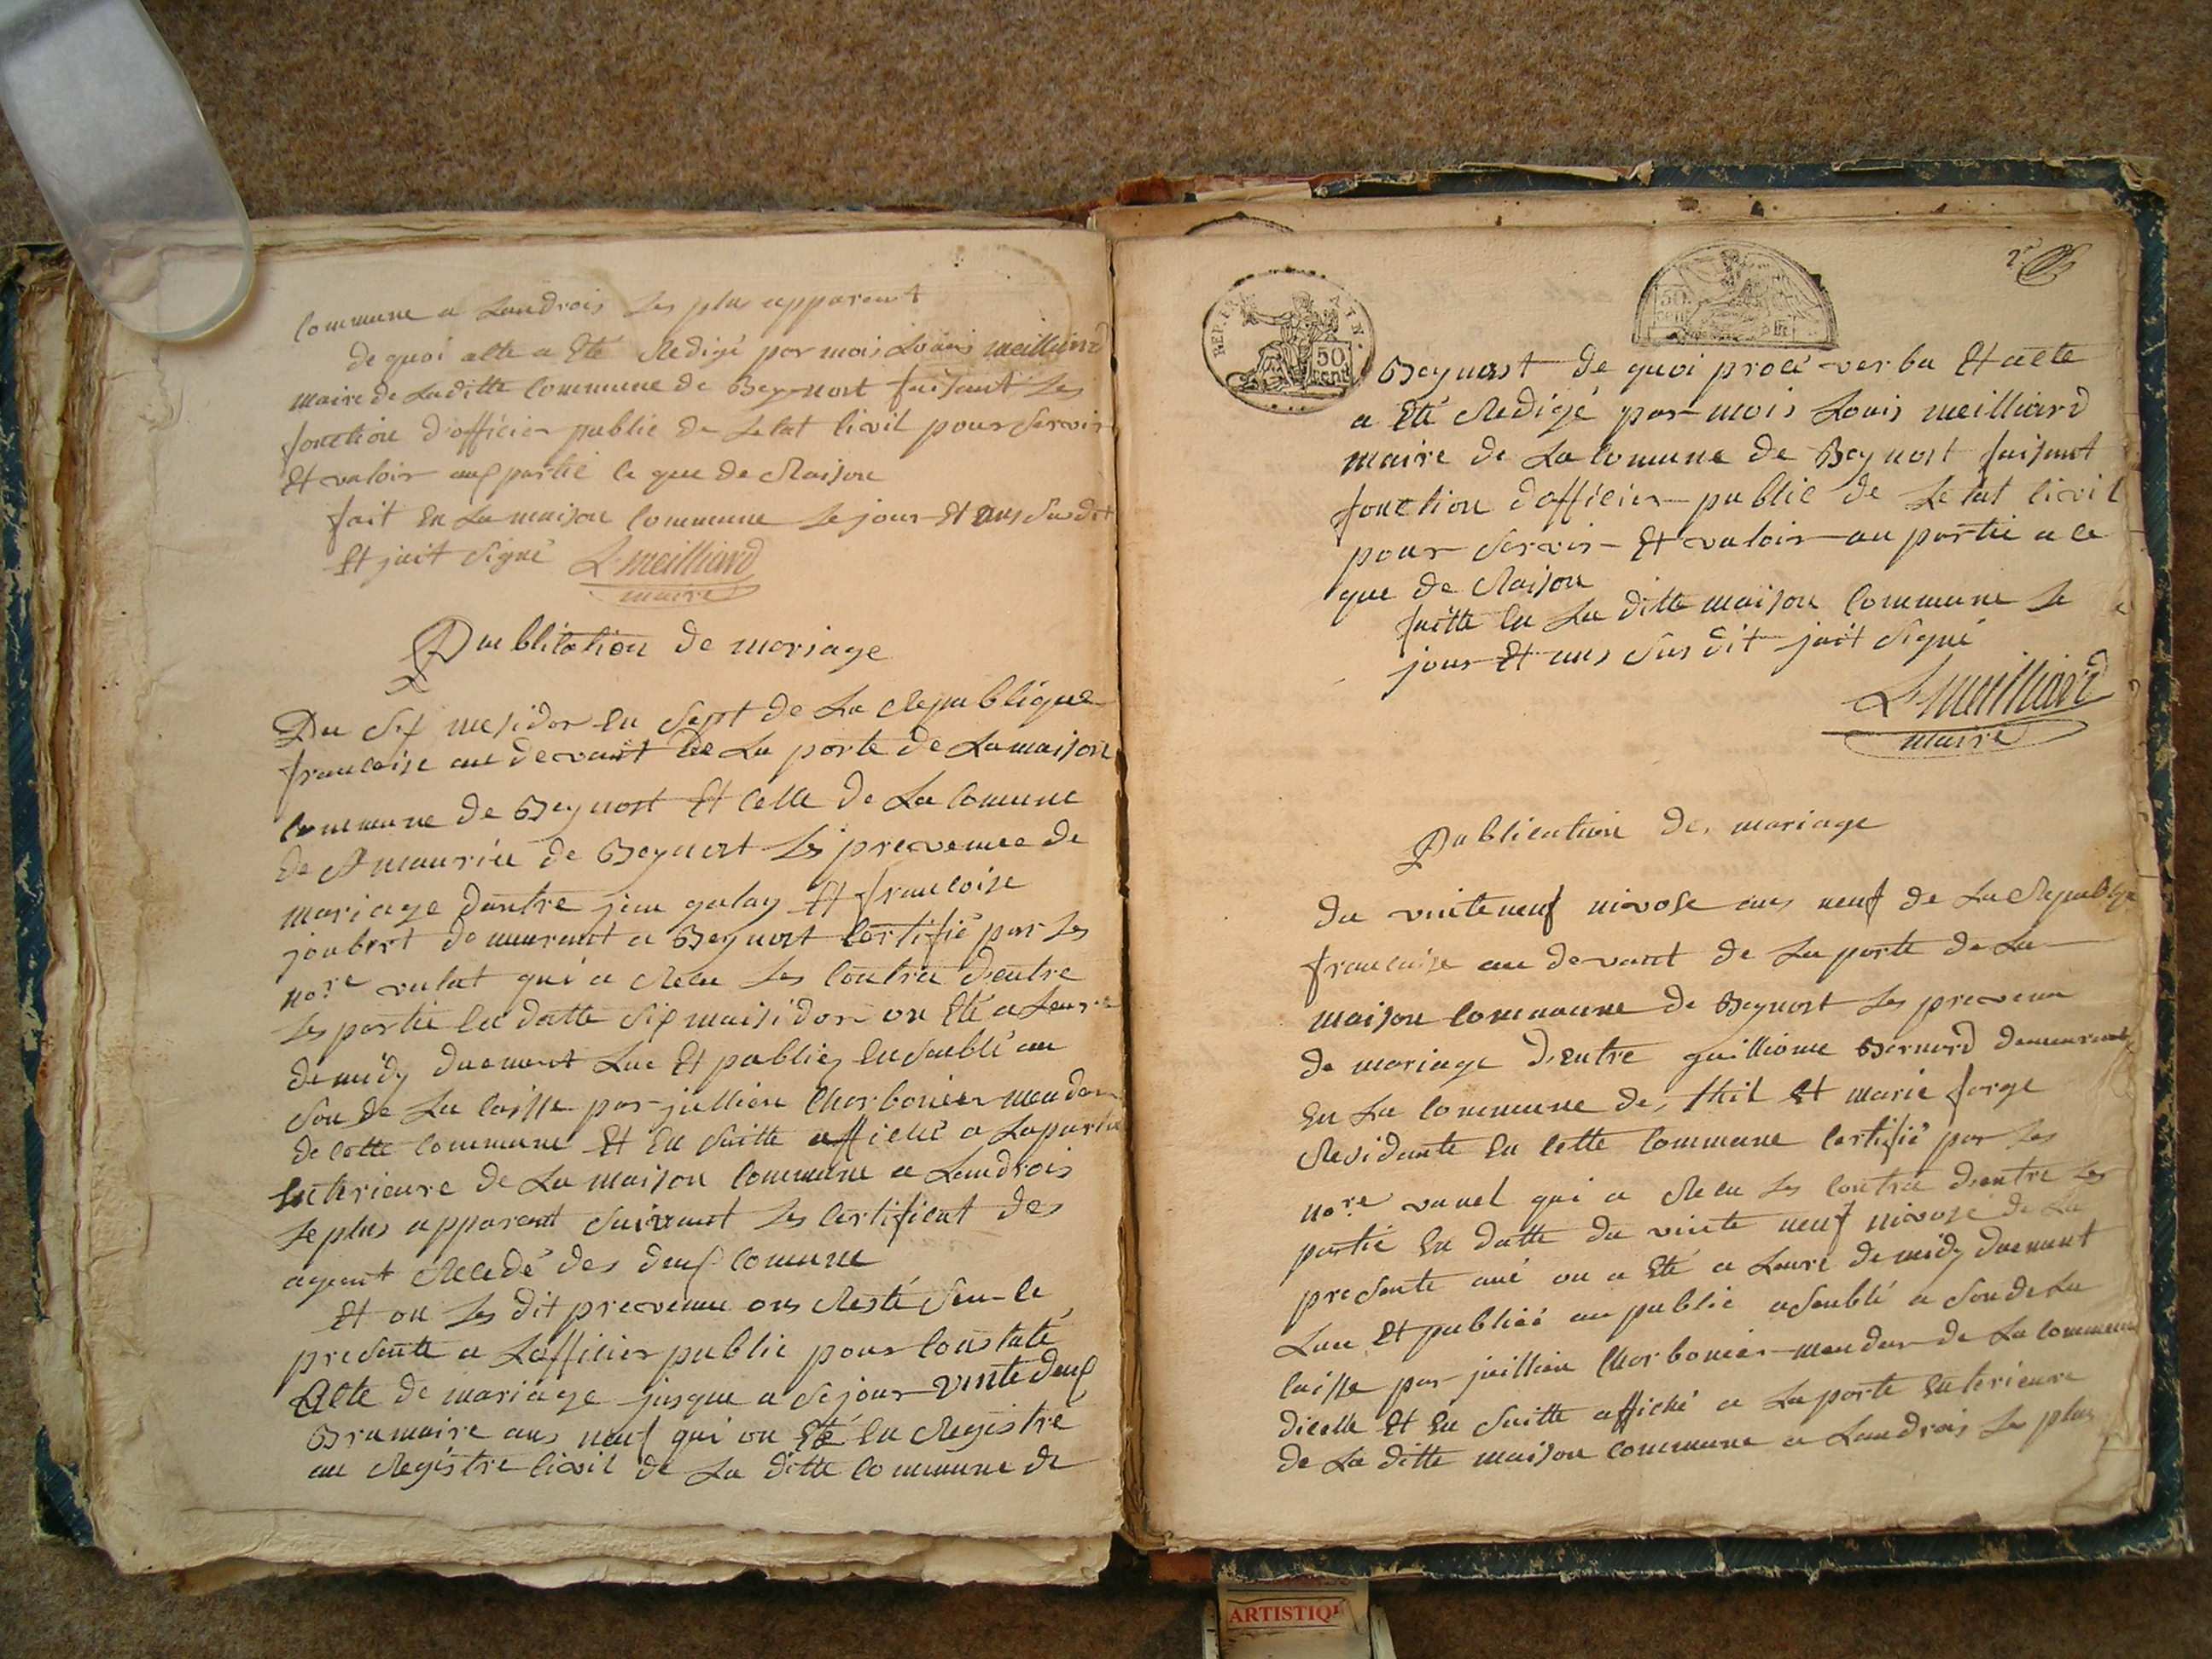 commune a Landrois les plu apparent
de quoi acte a Eté Redigé par mois Louis meilliard
maire de Laditte Commune de Beynost faisant les
fonction d'officier public de Letat Civil pour Servir
Et valoir aux partié ce que de Raison
fait En La maison Commune Le jour Et ans Susdit
Et jait Signé L meilliard
maire
Publication de mariage
Du Six mesidor En Sept de La Republique
francoise au devant de La porte de Lamaison
commune de Beynost Et Celle de La Comune
de St mauriu de Beynost Les prevenue de
mariage dentre jean galay Et francoise
joubert demeurant a Beynost Certifié par Les
nore rulat qui a Recu Les Contra dentre
Les partie En datte Six maisidor on Eté a Leure
de midy duemant Lue Et publiez En Semblé au
Son de La Caisse par jullien Charbonier mandar
de Cette Commune Et En Suitte affiché a Laporte
Exterieure de La maison Commune a Landrois
Le plus apparent Suivant Les Certificat des
agent des deux Comune
Et on Les dit prevenu ons Resté Sen Ce
presente a Lofficier public pour Constaté
Acte de mariage jusque a Se jour vinte deux
Brumaire ans neuf qui on Eté En Registré
au Registre Civil de La ditte Commune de
REP. FRA
50
cent
50
cen
Beynost de quoi procé verba Et acte
a Eté Redigé par mois Louis meilliard
maire de La Comune de Beynost faisant
fonction dofficier public de Letat Civil
pour Servir Et valoir au partié a Ce
que de Raison
faitte En La ditte maison Commune Le
jour Et ans Sus dit jait Signé
L meilliard
maire
Publication de mariage
du vinteneuf nivose ans neuf de La Republique
francaise au devant de La porte de La
maison Commune de Beynost Les prevenu
de mariage Dentre guilliome Bernard demeurant
En La Commune de thil Et marie forge
Residante En Cette Commune Certifié par Les
nore vanel qui a Recu Les Contra dentre Les
partié En datte du vinte neuf nivose de La
presente ané on a Eté a Leure de midy duemant
Lue Et publiéé au public aSemblé a Son de La
Caisse par juillien Charbonier mandar de La Commune
dicelle Et En Suitte affiché a La porte Exterieure
de La ditte maison Commune a Landrois Le plus
ARTISTIQ